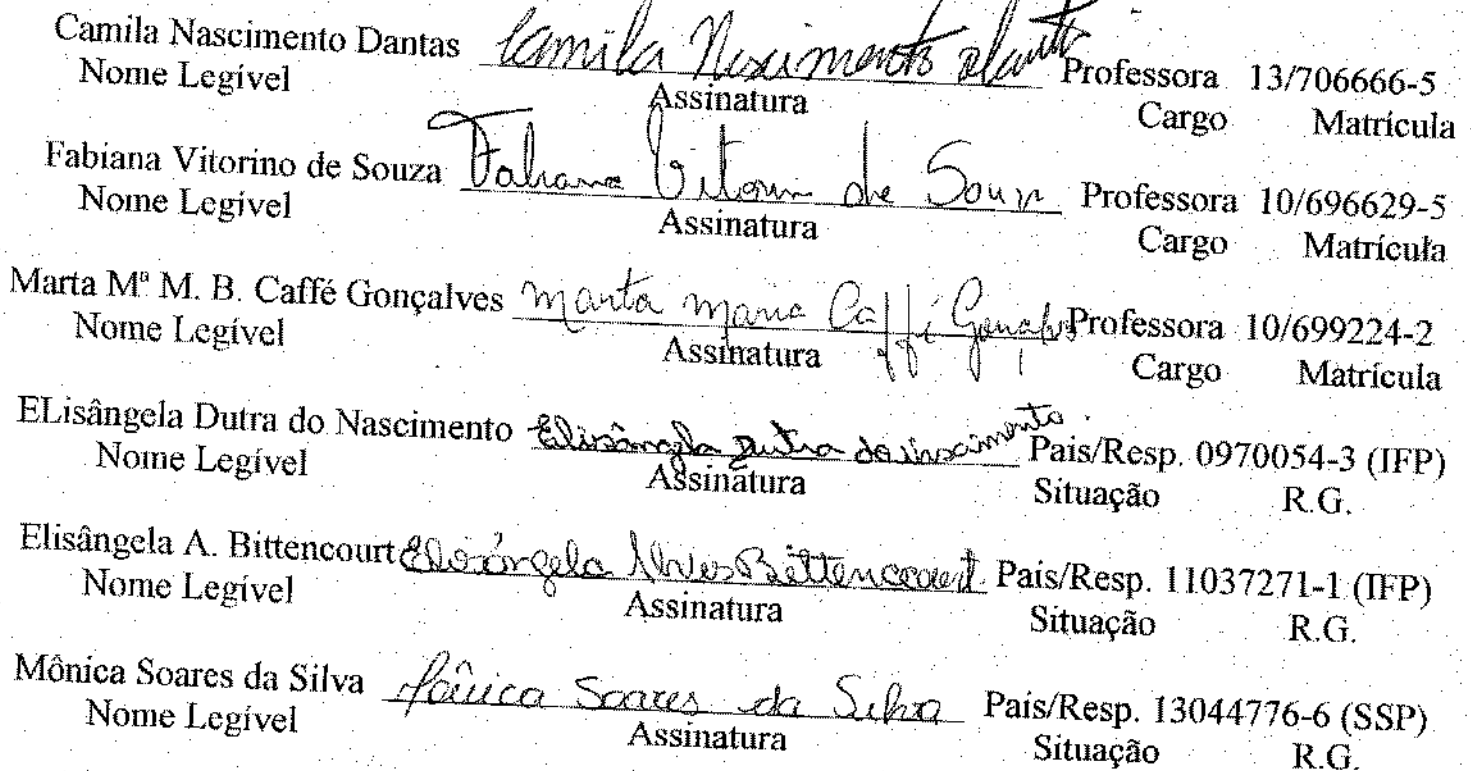 Camila Nascimento Dantas Camila Nascimento Dantas Professora 13/706666-5
Nome Legível Assinatura Cargo Matrícula
Fabiana Vitorino de Souza Fabiana Vitorin de Souza Professora 10/696629-5
Nome Legível Assinatura Cargo Matrícula
Marta Mª M. B. Caffé Gonçalves Marta Maria Caffé Gonçalves Professora 10/699224-2
Nome Legível Assinatura Cargo Matrícula
ELisângela Dutra do Nascimento Elisângela Dutra do Nascimento Pais/Resp. 0970054-3 (IFP)
Nome Legível Assinatura Situação R.G.
Elisângela A. Bittencourt Elisângela Alves Bittencourt Pais/Resp. 11037271-1 (IFP)
Nome Legível Assinatura Situação R.G.
Mônica Soares da Silva Mônica Soares da Silva Pais/Resp. 13044776-6 (SSP)
Nome Legível Assinatura Situação R.G.